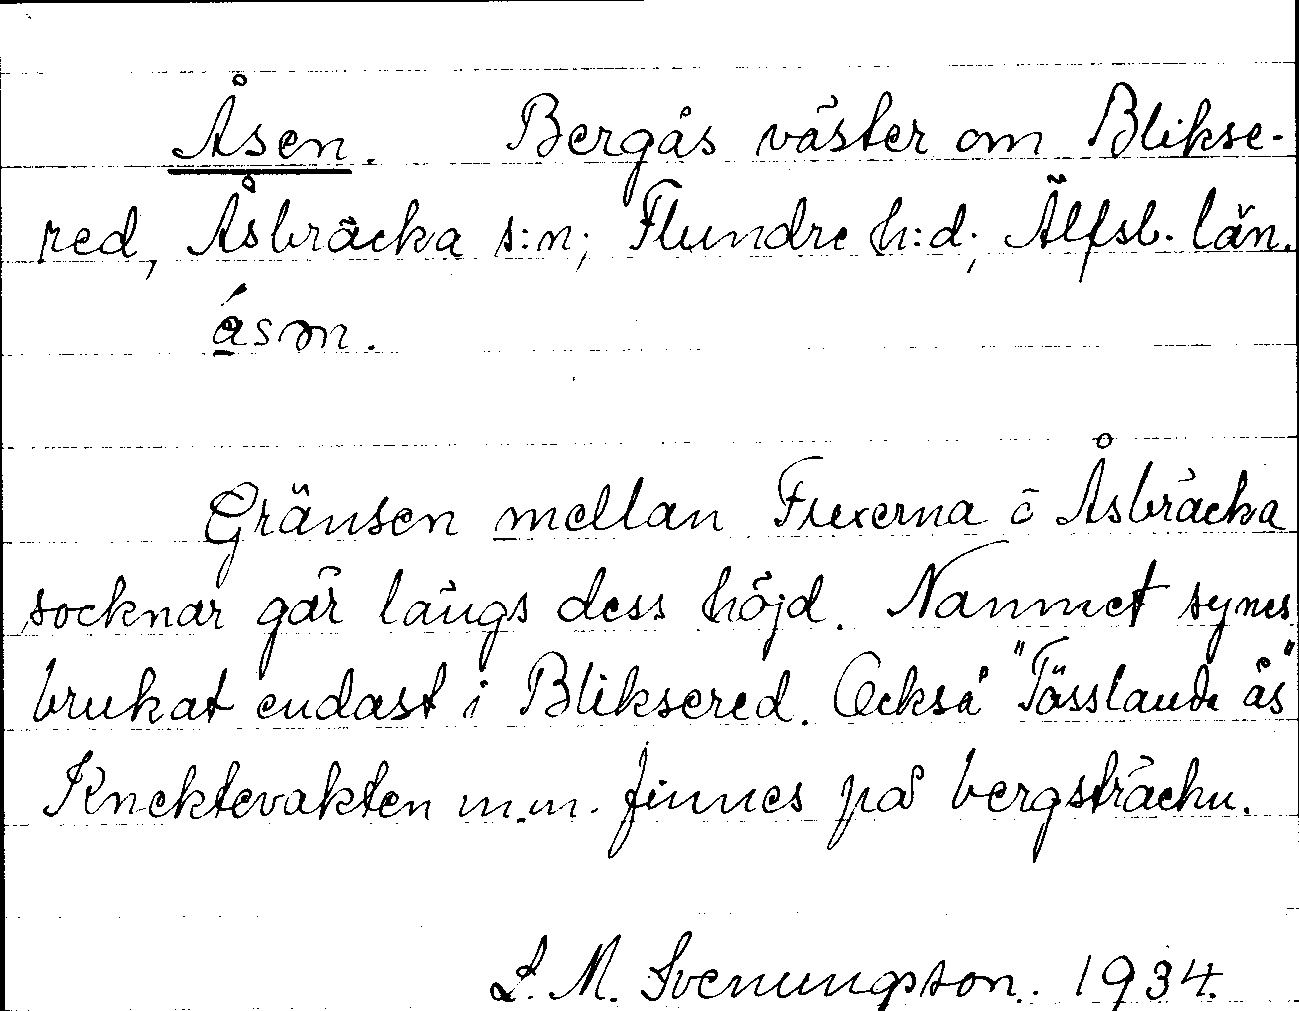 Åsen. Bergås väster om Blikse-
red, Åsbräcka s:n; Flundre h:d; Älfsb. län.
ásm.
Gränsen mellan Fuxerna o Åsbräcka
socknar går längs dess höjd. Namnet synes
brukat endast i Bliksered. Också "Tösslanda ås"
Knektevakten m.m. finnes på bergsträckn.
L. M. Svenungson. 1934.